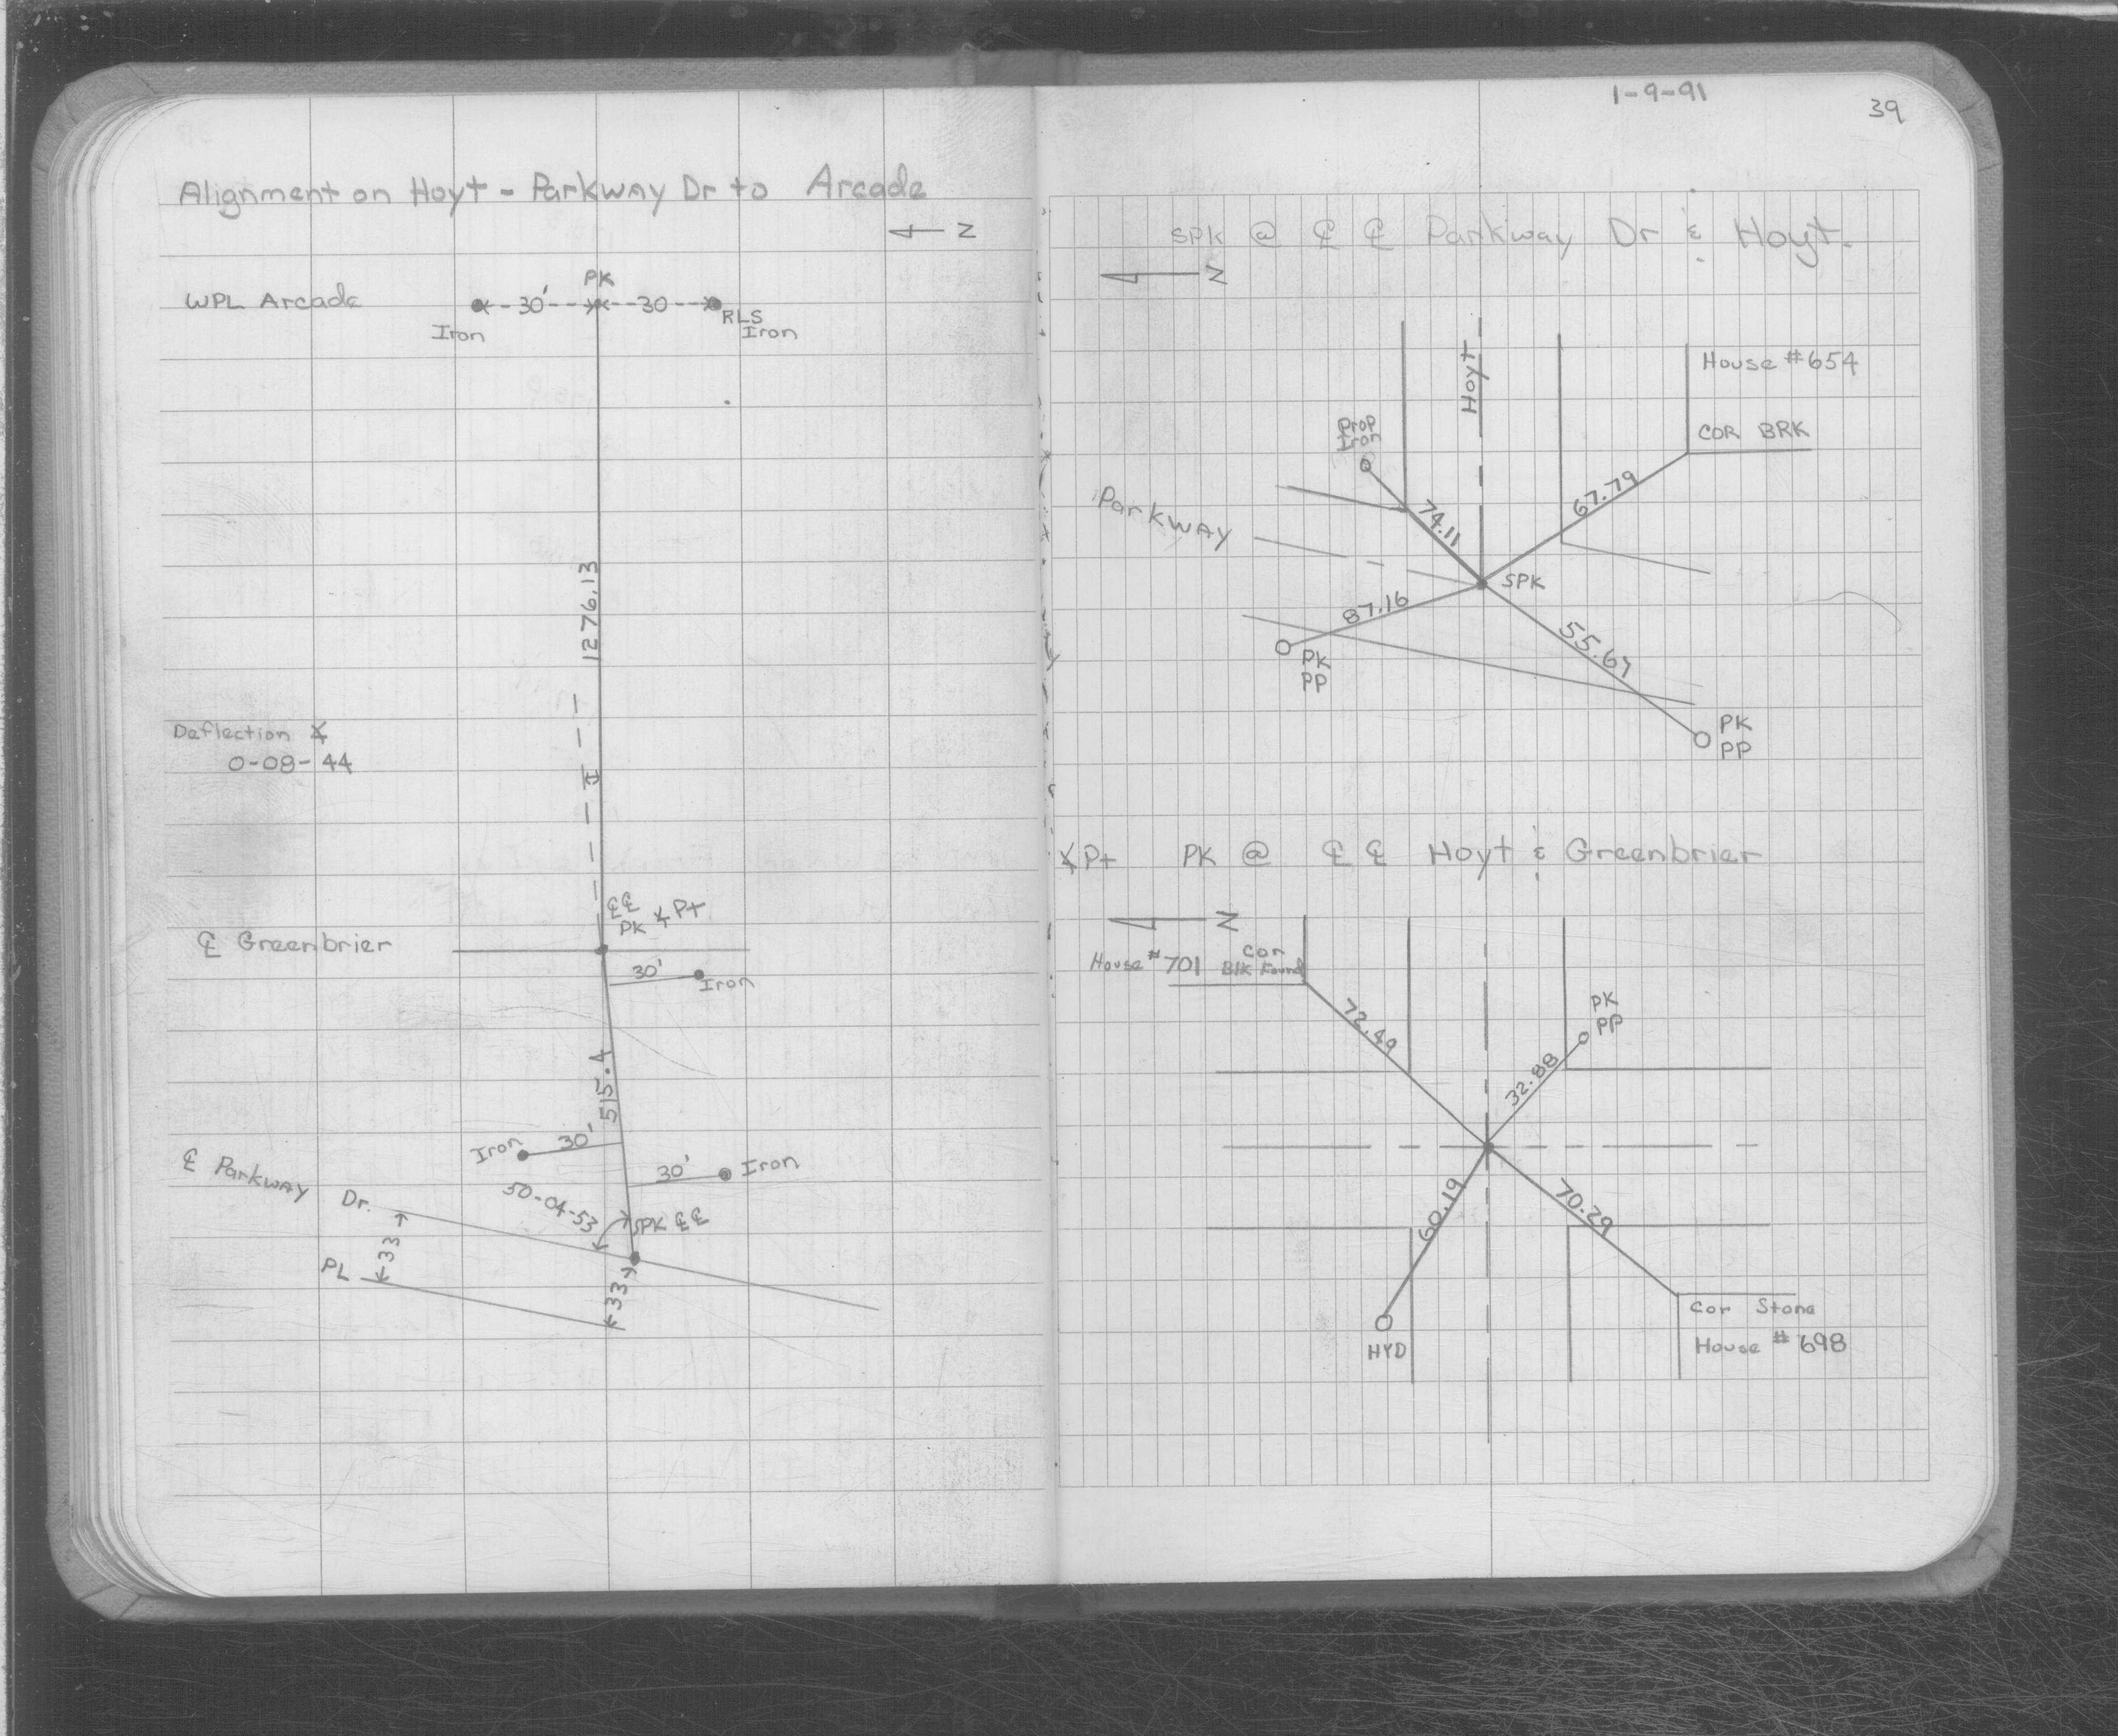 Alignment on Hoyt - Parkway Dr to Arcade
N
PK
WPL Arcade
30'
30
Iron
RLS
Iron
1276.13
Deflection ∡
0-08-44
℄ ℄
PK ∡ Pt
℄ Greenbrier
30'
Iron
515.4
Iron
30'
30'
Iron
℄ Parkway Dr.
50-04-53
SPK ℄ ℄
33
PL
33
1-9-91
39
SPK @ ℄ ℄ Parkway Dr & Hoyt.
N
Hoyt
House #654
Prop
Iron
COR BRK
Parkway
74.11
67.79
SPK
87.16
55.67
PK
PP
PK
PP
∡ Pt PK @ ℄ ℄ Hoyt & Greenbrier
N
House #701
Cor
Blk Found
PK
PP
72.49
32.88
60.19
70.29
Cor Stone
House #698
HYD